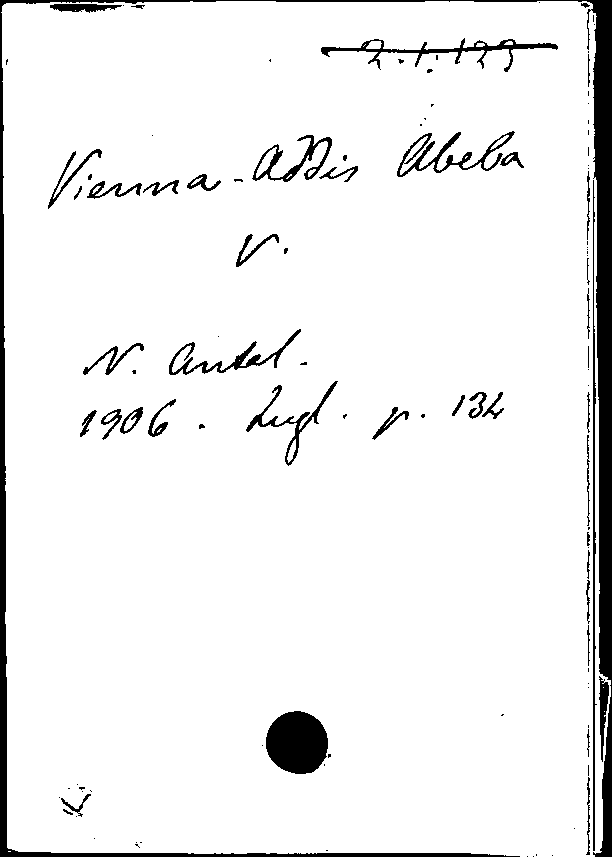 2.1.123
Vienna-Addis Abeba
V.
N. Antol.
1906. Lugl. p. 134
K